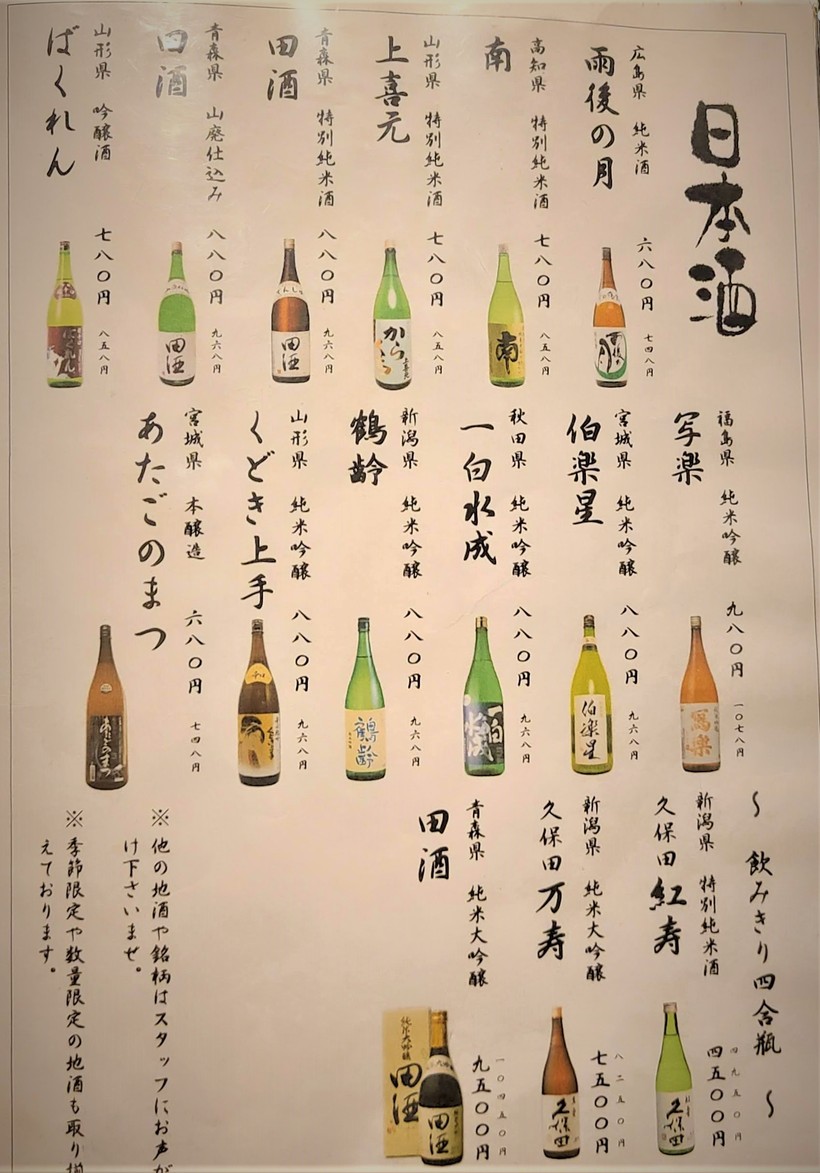 日本酒
広島県 純米酒
雨後の月
六八〇円
七四八円
高知県 特別純米酒
南
七八〇円
八五八円
山形県 特別純米酒
上喜元
七八〇円
八五八円
青森県 特別純米酒
田酒
八八〇円
九六八円
青森県 山廃仕込み
田酒
八八〇円
九六八円
山形県 吟醸酒
ばくれん
七八〇円
八五八円
南
から
田酒
田酒
福島県 純米吟醸
写楽
九八〇円
一〇七八円
宮城県 純米吟醸
伯楽星
八八〇円
九六八円
秋田県 純米吟醸
一白水成
八八〇円
九六八円
新潟県 純米吟醸
鶴齢
八八〇円
九六八円
山形県 純米吟醸
くどき上手
八八〇円
九六八円
宮城県 本醸造
あたごのまつ
六八〇円
七四八円
寫樂
伯楽星
一白水成
鶴齢
あたごのまつ
〜 飲みきり四合瓶 〜
新潟県 特別純米酒
久保田 紅寿
四五〇〇円
四九五〇円
新潟県 純米大吟醸
久保田 万寿
七五〇〇円
八二五〇円
青森県 純米大吟醸
田酒
九五〇〇円
一〇四五〇円
久保田
久保田
田酒
純米大吟醸
田酒
※他の地酒や銘柄はスタッフにお声が
け下さいませ。
※季節限定や数量限定の地酒も取り揃
えております。